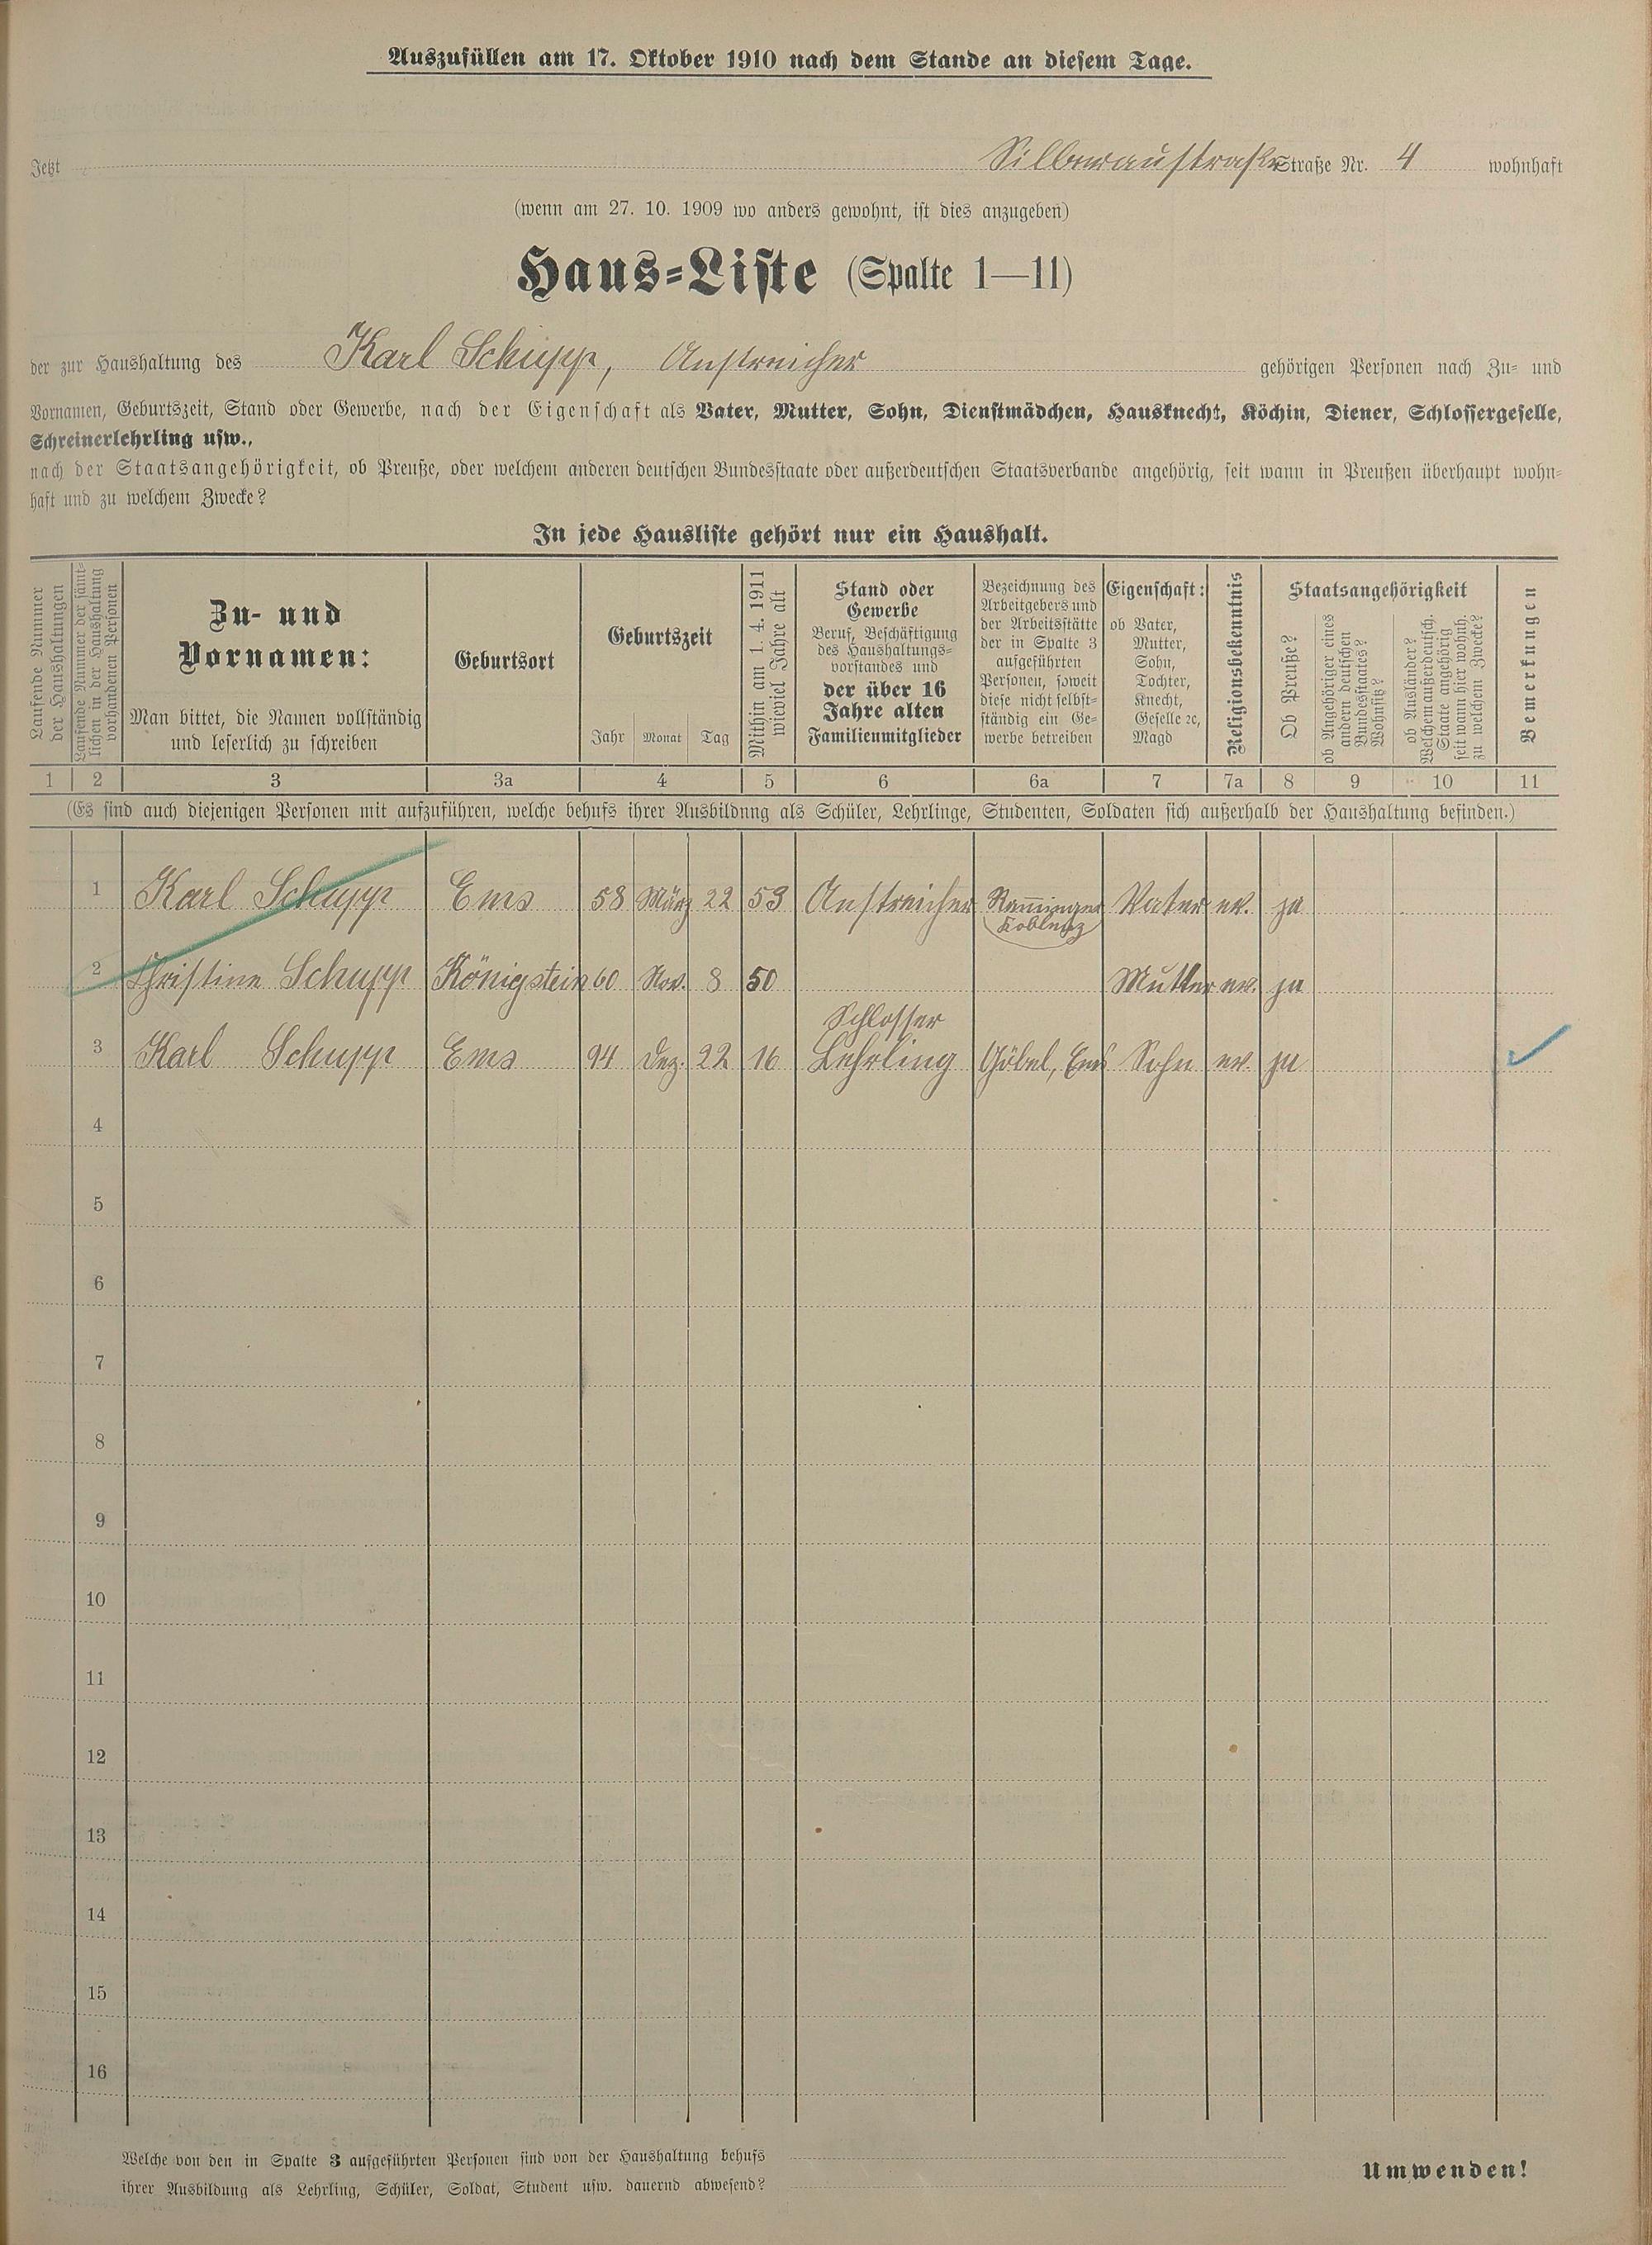 Auszufüllen am 17. Oktober 1910 nach dem Stande an diesem Tage.
Jetzt Silberaustraße Straße Nr. 4 wohnhaft
(wenn am 27. 10. 1909 wo anders gewohnt, ist dies anzugeben)
Haus-Liste (Spalte 1—11)
der zur Haushaltung des Karl Schupp, Anstreicher gehörigen Personen nach Zu- und
Vornamen, Geburtszeit, Stand oder Gewerbe, nach der Eigenschaft als Vater, Mutter, Sohn, Dienstmädchen, Hausknecht, Köchin, Diener, Schlossergeselle,
Schreinerlehrling usw.,
nach der Staatsangehörigkeit, ob Preuße, oder welchem anderen deutschen Bundesstaate oder außerdeutschen Staatsverbande angehörig, seit wann in Preußen überhaupt wohn-
haft und zu welchem Zwecke?
In jede Hausliste gehört nur ein Haushalt.
Laufende Nummer
der Haushaltungen
Laufende Nummer der sämt-
lichen in der Haushaltung
vorhandenen Personen
Zu- und
Vornamen:
Man bittet, die Namen vollständig
und leserlich zu schreiben
Geburtsort
Geburtszeit
Jahr Monat Tag
Mithin am 1. 4. 1911
wieviel Jahre alt
Stand oder
Gewerbe
Beruf, Beschäftigung
des Haushaltungs-
vorstandes und
der über 16
Jahre alten
Familienmitglieder
Bezeichnung des
Arbeitgebers und
der Arbeitsstätte
der in Spalte 3
aufgeführten
Personen, soweit
diese nicht selbst-
ständig ein Ge-
werbe betreiben
Eigenschaft:
ob Vater,
Mutter,
Sohn,
Tochter,
Knecht,
Geselle ꝛc,
Magd
Religionsbekenntnis
Staatsangehörigkeit
Ob Preuße?
ob Angehöriger eines
andern deutschen
Bundesstaates?
Wohnsitz?
ob Ausländer?
Welchem außerdeutsch.
Staate angehörig
seit wann hier wohnh.
zu welchem Zwecke?
Bemerkungen
1 2 3 3a 4 5 6 6a 7 7a 8 9 10 11
(Es sind auch diejenigen Personen mit aufzuführen, welche behufs ihrer Ausbildung als Schüler, Lehrlinge, Studenten, Soldaten sich außerhalb der Haushaltung befinden.)
1 Karl Schupp Ems 58 März 22 53 Anstreicher Vater ev. ja
Koblenz
2 Christine Schupp Königstein 60 Nov. 8 50 Mutter ev. ja
Schlosser
3 Karl Schupp Ems 94 Dez. 22 16 Lehrling Göbel, Ems Sohn ev. ja
4
5
6
7
8
9
10
11
12
13
14
15
16
Welche von den in Spalte 3 aufgeführten Personen sind von der Haushaltung behufs
ihrer Ausbildung als Lehrling, Schüler, Soldat, Student usw. dauernd abwesend?
Umwenden!